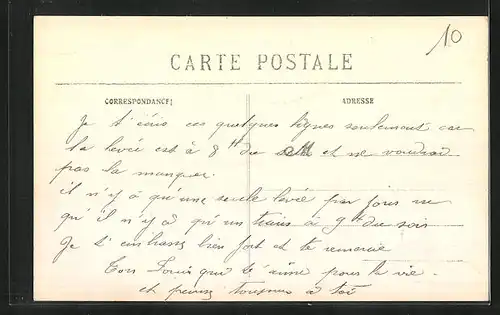 10
CARTE POSTALE
CORRESPONDANCE
ADRESSE
Je t'écris ces quelques lignes seulement car
la levée est à 8 h du et ne voudrai
pas la manquer.
il n'y à qu'une seule levée par jour vu
qu'il n'y a qu'un train à 9 h du soir
Je t'embrasse bien fort et te remercie
Ton Louis qui t'aime pour la vie.
et pense toujours à toi